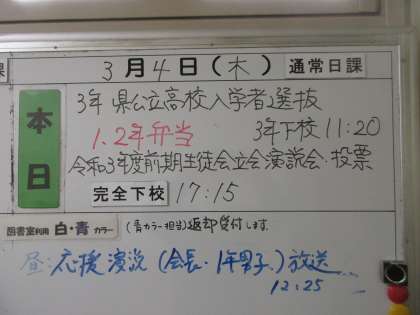 課 3月4日(木) 通常日課
本日
3年 県公立高校入学者選抜
1.2年弁当 3年下校 11:20
令和3年度前期生徒会立会演説会・投票
完全下校 17:15
図書室利用 白・青 カラー (青カラー担当)返却受付します。
昼:応援演説(会長・1年男子)放送
12:25